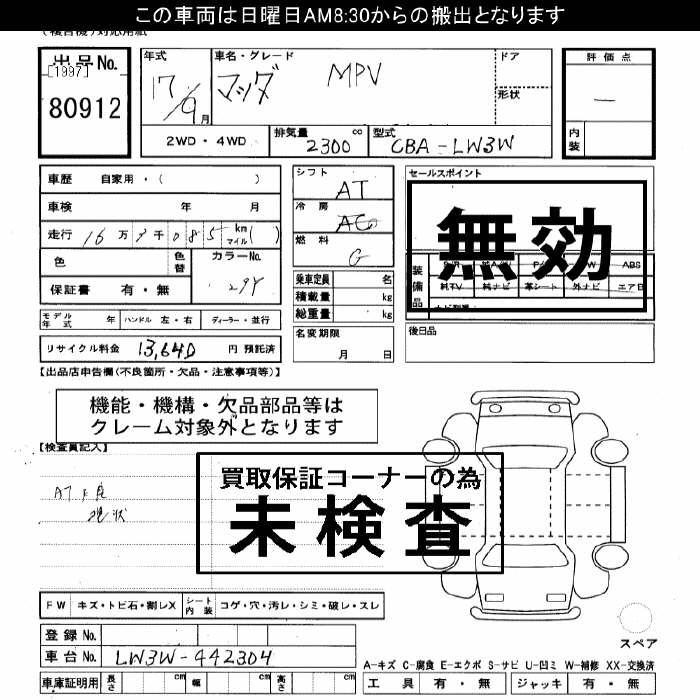 この車両は日曜日AM8:30からの搬出となります
出品No.
[1997]
80912
年式
17/9月
車名・グレード
マツダ MPV
ドア
形状
評価点
—
内装
2WD・4WD
排気量 2300 cc
型式 CBA-LW3W
車歴 自家用・( )
車検 年 月
走行 16万 7千085 km マイル( )
色
色替
カラーNo.
29Y
保証書 有・無
モデル年式 年
ハンドル 左・右
ディーラー・並行
リサイクル料金 13,640 円 預託済
シフト AT
冷房 AC
燃料 G
乗車定員 名
積載量 kg
総重量 kg
名変期限
月 日
セールスポイント
無効
装備品
ABS
純TV 純ナビ 革シート 外ナビ エアB
後日品
【出品店申告欄(不良箇所・欠品・注意事項等)】
機能・機構・欠品部品等は
クレーム対象外となります
【検査員記入】
買取保証コーナーの為
未検査
AT不良
現状
FW キズ・トビ石・割レX
シート内装 コゲ・穴・汚レ・シミ・破レ・スレ
登録No.
車台No. LW3W-442304
車庫証明用 長さ cm 幅 cm 高さ cm
スペア
A-キズ C-腐食 E-エクボ S-サビ U-凹ミ W-補修 XX-交換済
工具 有・無 ジャッキ 有・無